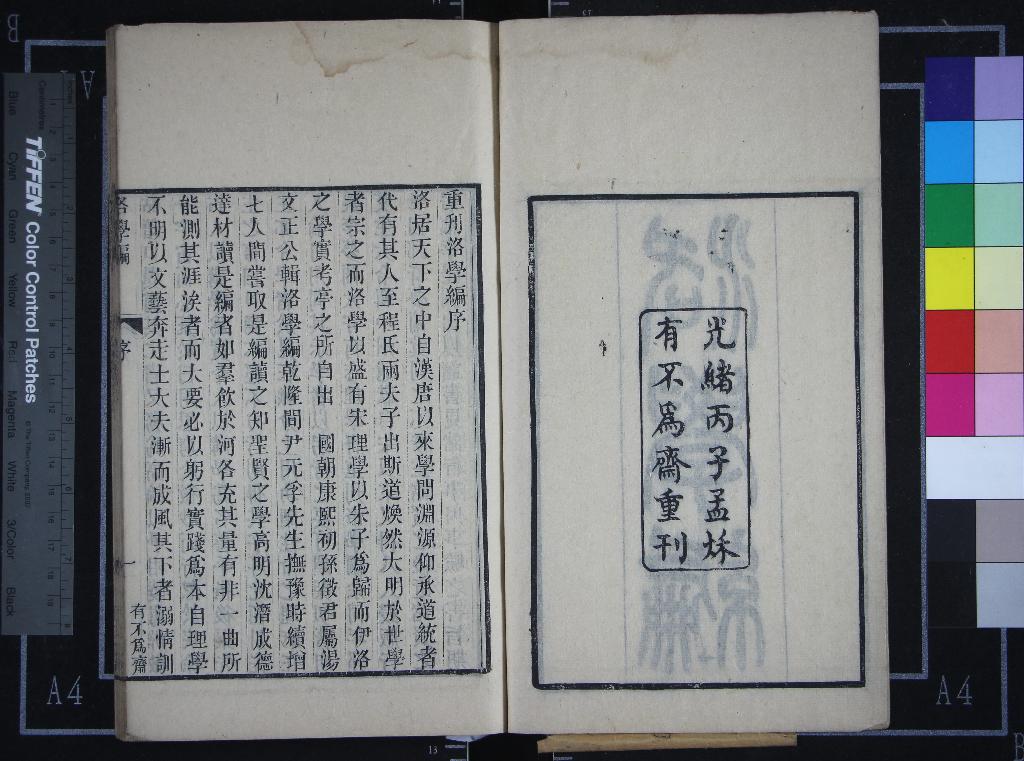 光緒丙子孟秌
有不爲齋重刊
重刊洛學編序
洛居天下之中自漢唐以來學問淵源仰承道統者
代有其人至程氏兩夫子出斯道煥然大明於世學
者宗之而洛學以盛有宋理學以朱子爲歸而伊洛
之學實考亭之所自出 國朝康熙初孫徵君屬湯
文正公輯洛學編乾隆間尹元孚先生撫豫時續增
七人間嘗取是編讀之知聖賢之學高明沈潛成德
達材讀是編者如羣飲於河各充其量有非一曲所
能測其涯涘者而大要必以躬行實踐爲本自理學
不明以文藝奔走士大夫漸而成風其下者溺情訓
洛學編
序
一
有不爲齋
TIFFEN Color Control Patches
© The Tiffen Company, 2007
Centimetres
Inches
Blue
Cyan
Green
Yellow
Red
Magenta
White
3/Color
Black
A4
A4
A
B
B
13